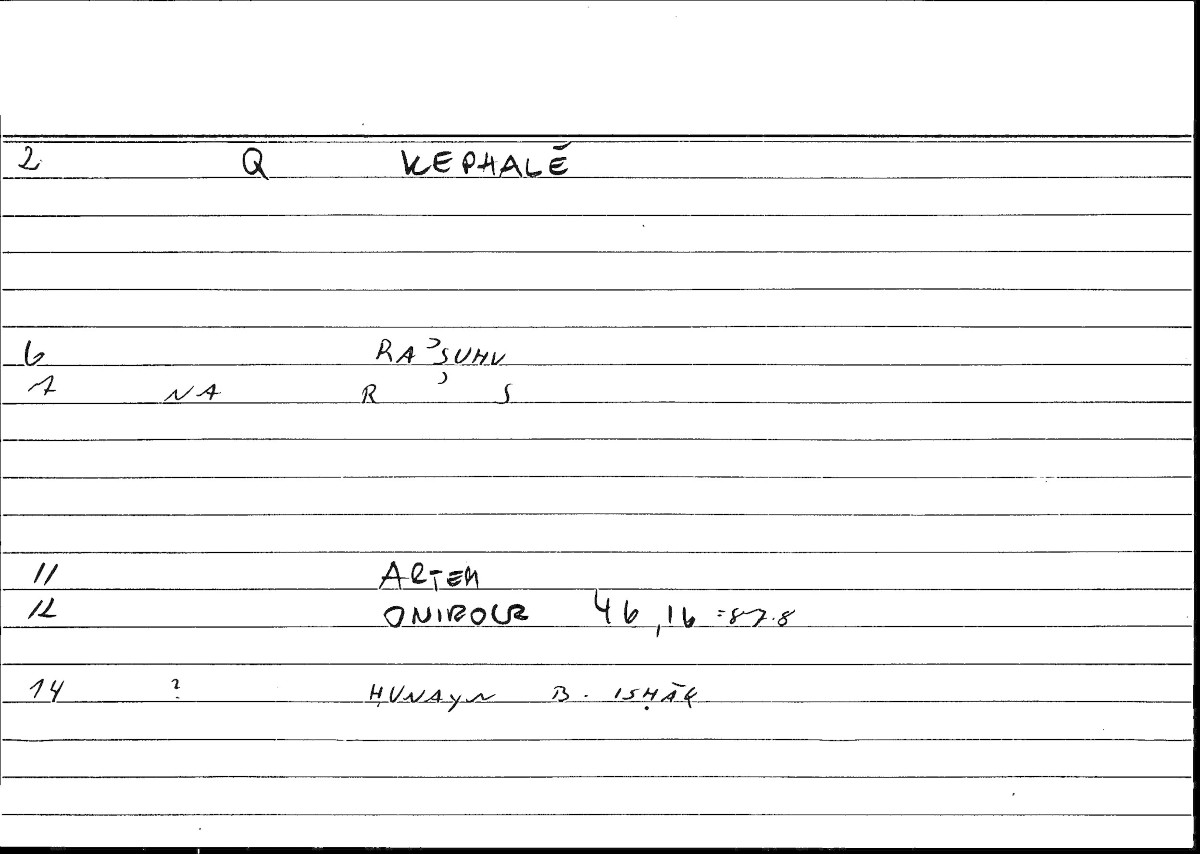 2 Q KEPHALĒ
6 RAʾSUHU
7 NA R ʾ S
11 ARTEM
12 ONIROCR 46,16 =87.8
14 ? ḤUNAYN B. ISḤĀQ